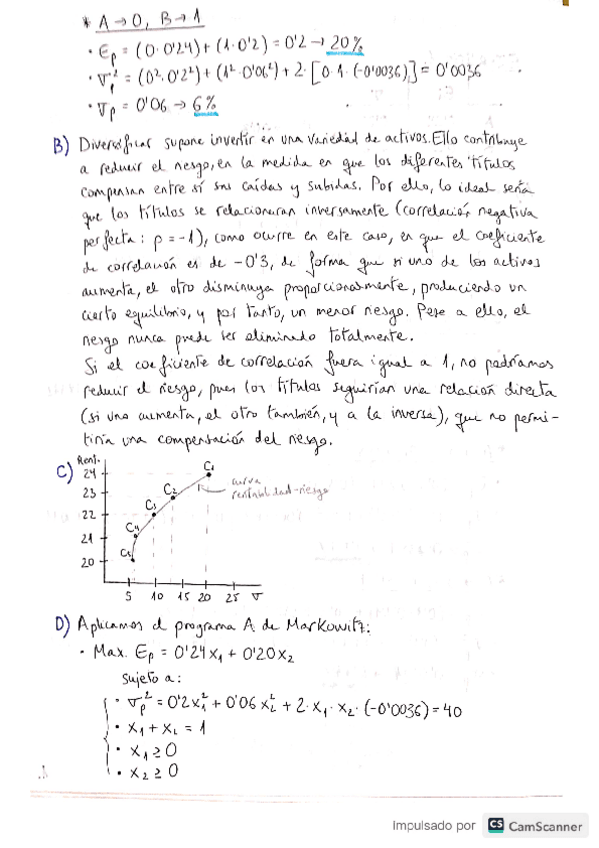 * A → 0, B → 1
· Ep = (0·0'24) + (1·0'2) = 0'2 → 20%
· σp² = (0²·0'2²) + (1²·0'06²) + 2·[0·1·(-0'0036)] = 0'0036
· σp = 0'06 → 6%
B) Diversificar supone invertir en una variedad de activos. Ello contribuye
a reducir el riesgo, en la medida en que los diferentes títulos
compensan entre sí sus caídas y subidas. Por ello, lo ideal sería
que los títulos se relacionaran inversamente (correlación negativa
perfecta: ρ = -1), como ocurre en este caso, en que el coeficiente
de correlación es de -0'3, de forma que si uno de los activos
aumenta, el otro disminuya proporcionalmente, produciendo un
cierto equilibrio, y por tanto, un menor riesgo. Pese a ello, el
riesgo nunca puede ser eliminado totalmente.
Si el coeficiente de correlación fuera igual a 1, no podríamos
reducir el riesgo, pues los títulos seguirían una relación directa
(si uno aumenta, el otro también, y a la inversa), que no permi-
tiría una compensación del riesgo.
C) Rent.
24
23
22
21
20
C1
C2
C3
C4
C5
curva
rentabilidad-riesgo
5 10 15 20 25 σ
D) Aplicamos el programa A de Markowitz:
· Max. Ep = 0'24x1 + 0'20x2
sujeto a:
· σp² = 0'2x1² + 0'06x2² + 2·x1·x2·(-0'0036) = 40
· x1 + x2 = 1
· x1 ≥ 0
· x2 ≥ 0
Impulsado por CS CamScanner